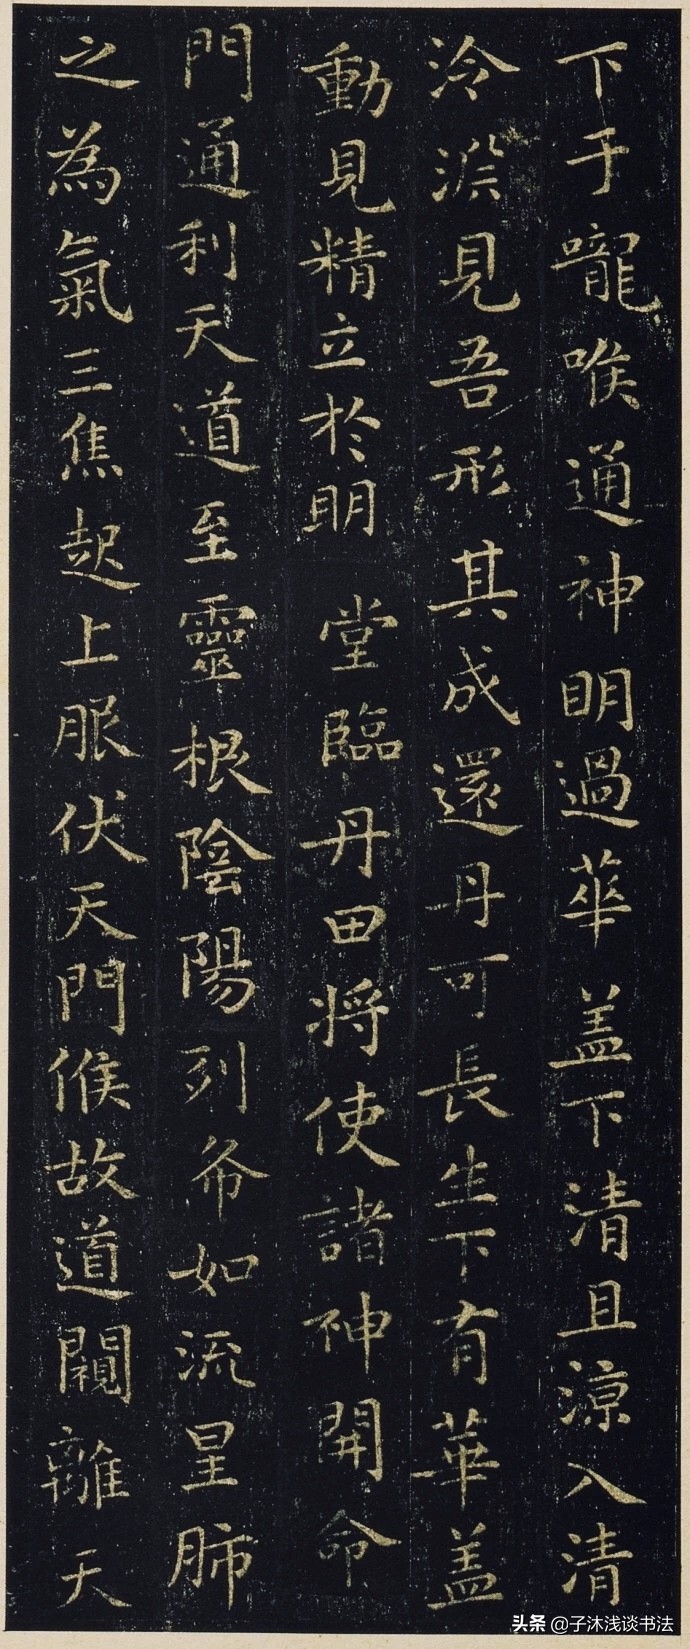 下于嚨喉通神明過華盖下清且涼入清
泠淵見吾形其成還丹可長生下有華盖
動見精立於明堂臨丹田将使諸神開命
門通利天道至靈根陰陽列布如流星肺
之為氣三焦起上服伏天門候故道闚離天
头条 @子沐浅谈书法